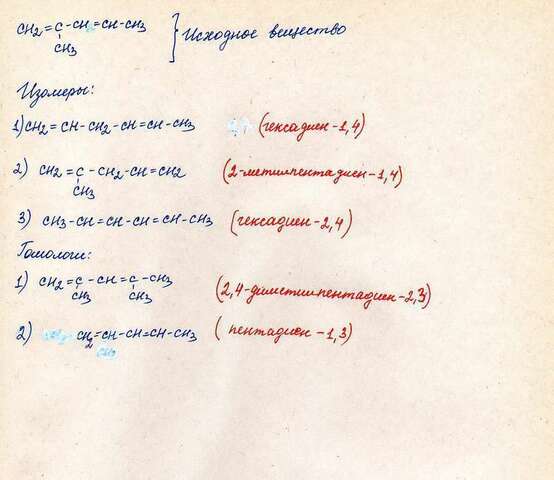 CH2=C-CH=CH-CH3 } Исходное вещество
CH3
Изомеры:
1) CH2=CH-CH2-CH=CH-CH3 (гексадиен-1,4)
2) CH2=C-CH2-CH=CH2 (2-метилпентадиен-1,4)
CH3
3) CH3-CH=CH-CH=CH-CH3 (гексадиен-2,4)
Гомологи:
1) CH2=C-CH=C-CH3 (2,4-диметилпентадиен-2,3)
CH3 CH3
2) CH2=CH-CH=CH-CH3 (пентадиен-1,3)
CH3